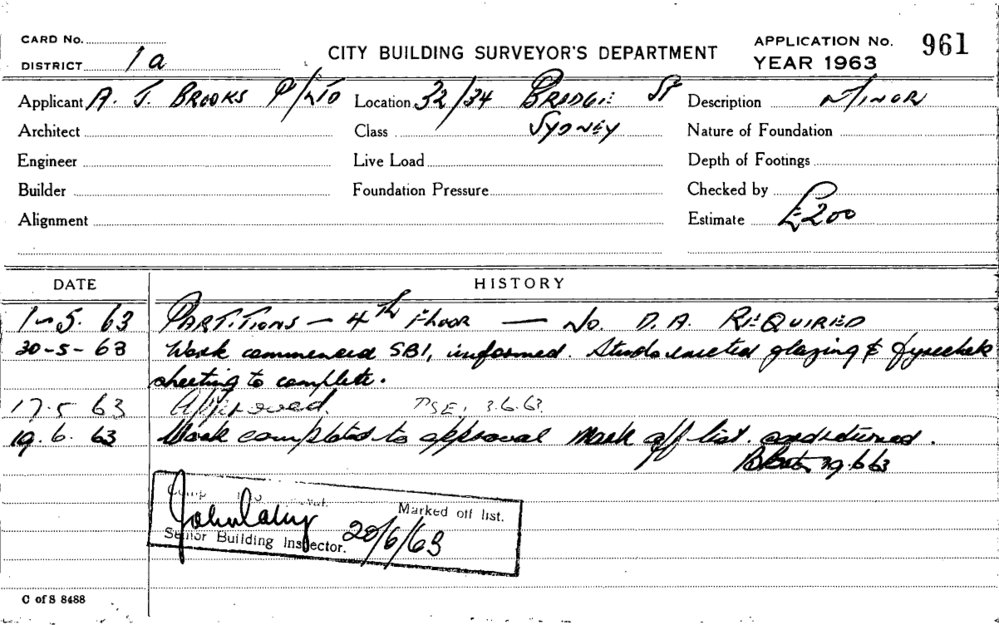 CARD No.
DISTRICT 1a
CITY BUILDING SURVEYOR'S DEPARTMENT
APPLICATION No. 961
YEAR 1963
Applicant A. J. BROOKS P/LTD Location 32/34 BRIDGE St Description MINOR
Architect Class SYDNEY Nature of Foundation
Engineer Live Load Depth of Footings
Builder Foundation Pressure Checked by
Alignment Estimate £200
DATE HISTORY
1-5. 63 PARTITIONS - 4th Floor - No. D.A. REQUIRED
30-5-63 Work commenced SBI, informed. Studs erected glazing & Gyprock
sheeting to complete.
17.5 63 Approved. 3.6.63
19. 6. 63 Work completed to approval Mark off list. and returned.
19.6.63
Marked off list.
Senior Building Inspector. 20/6/63
C of S 8488